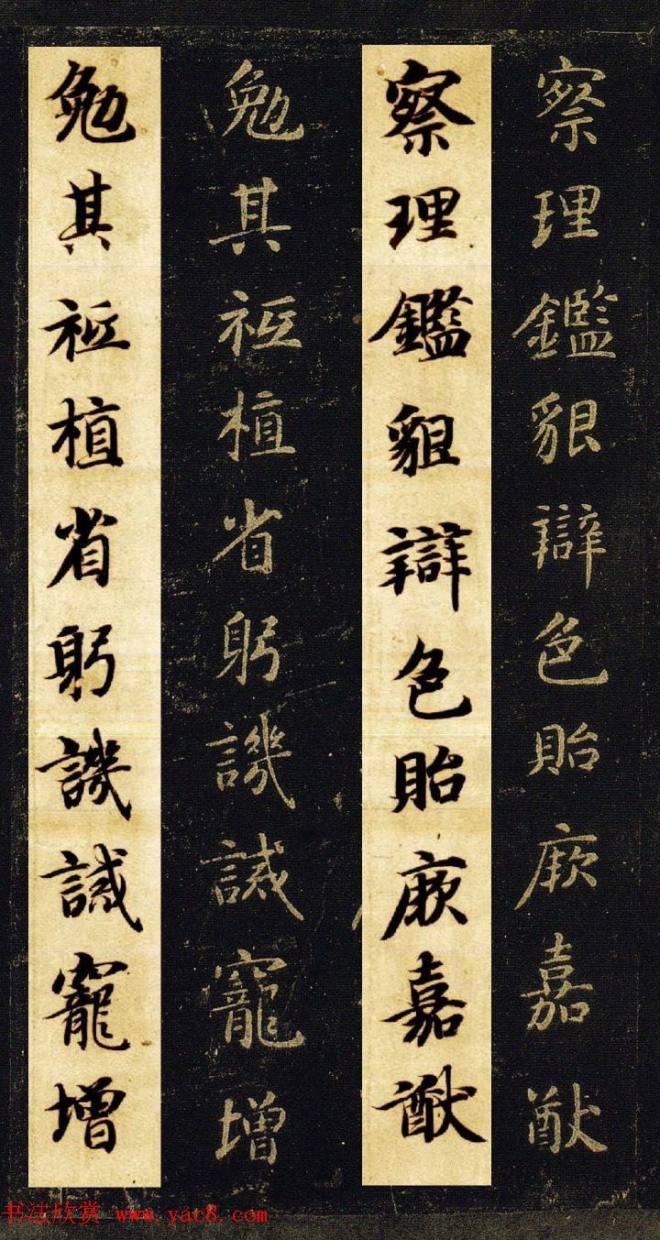 察理鑑貌辯色貽厥嘉猷
察理鑑貌辯色貽厥嘉猷
勉其祗植省躬譏誡寵增
勉其祗植省躬譏誡寵增
书法欣赏 www.yac8.com